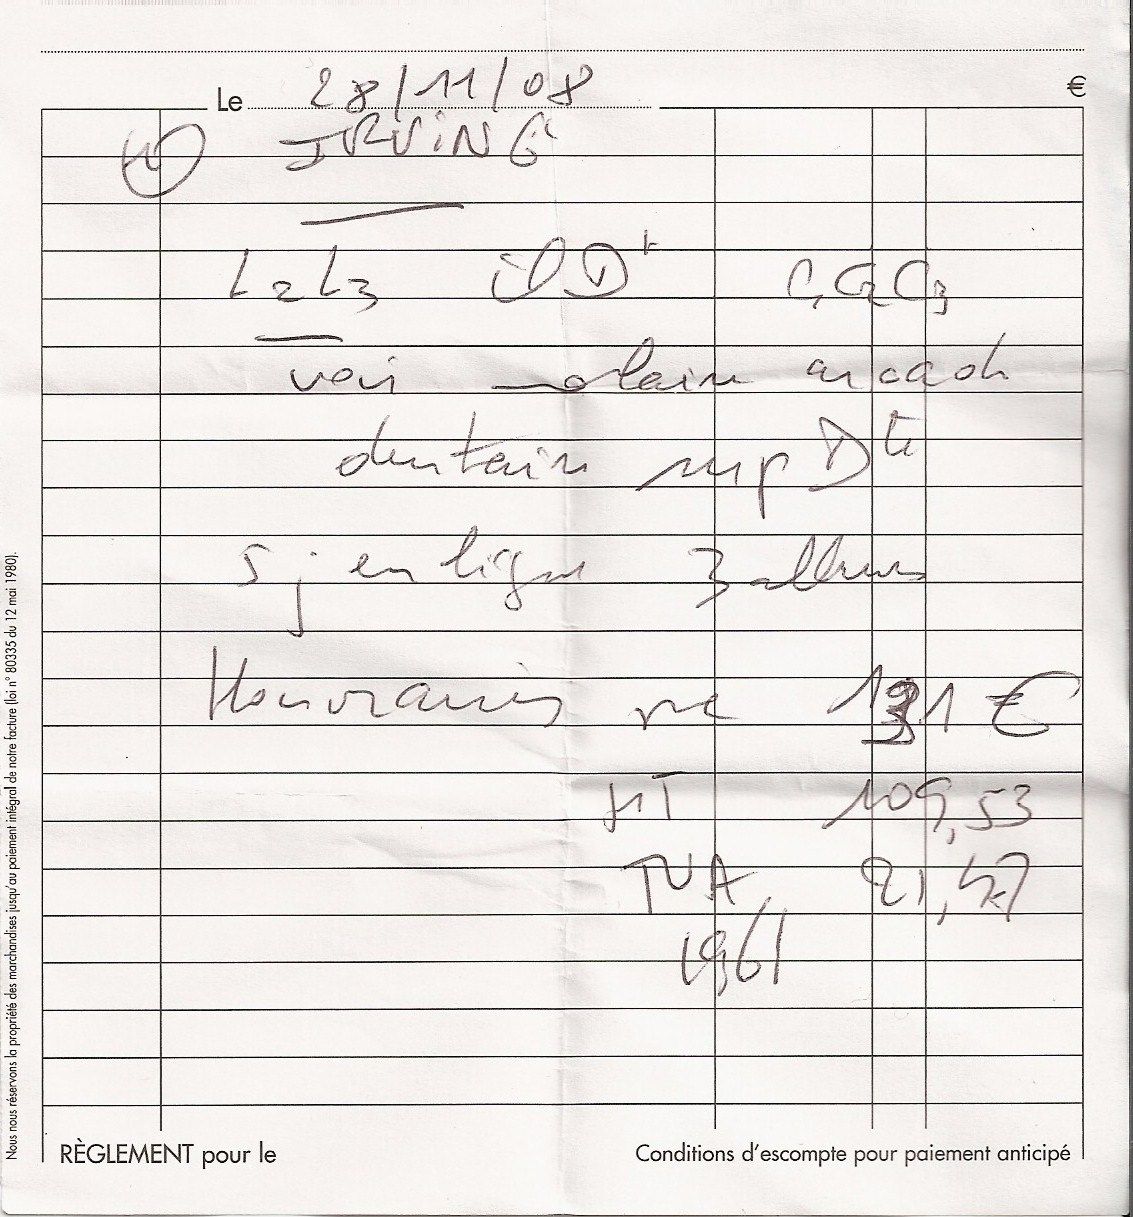 €
Le 28/11/08
IRVING
L2L3 D C1C2C3
voir molaire arcade
dentaire sup Dte
5 j en ligne 3 allures
Honoraires 131 €
HT 109,53
TVA 21,47
19,6
RÈGLEMENT pour le
Conditions d'escompte pour paiement anticipé
Nous nous réservons la propriété des marchandises jusqu'au paiement intégral de notre facture (loi n° 80335 du 12 mai 1980).